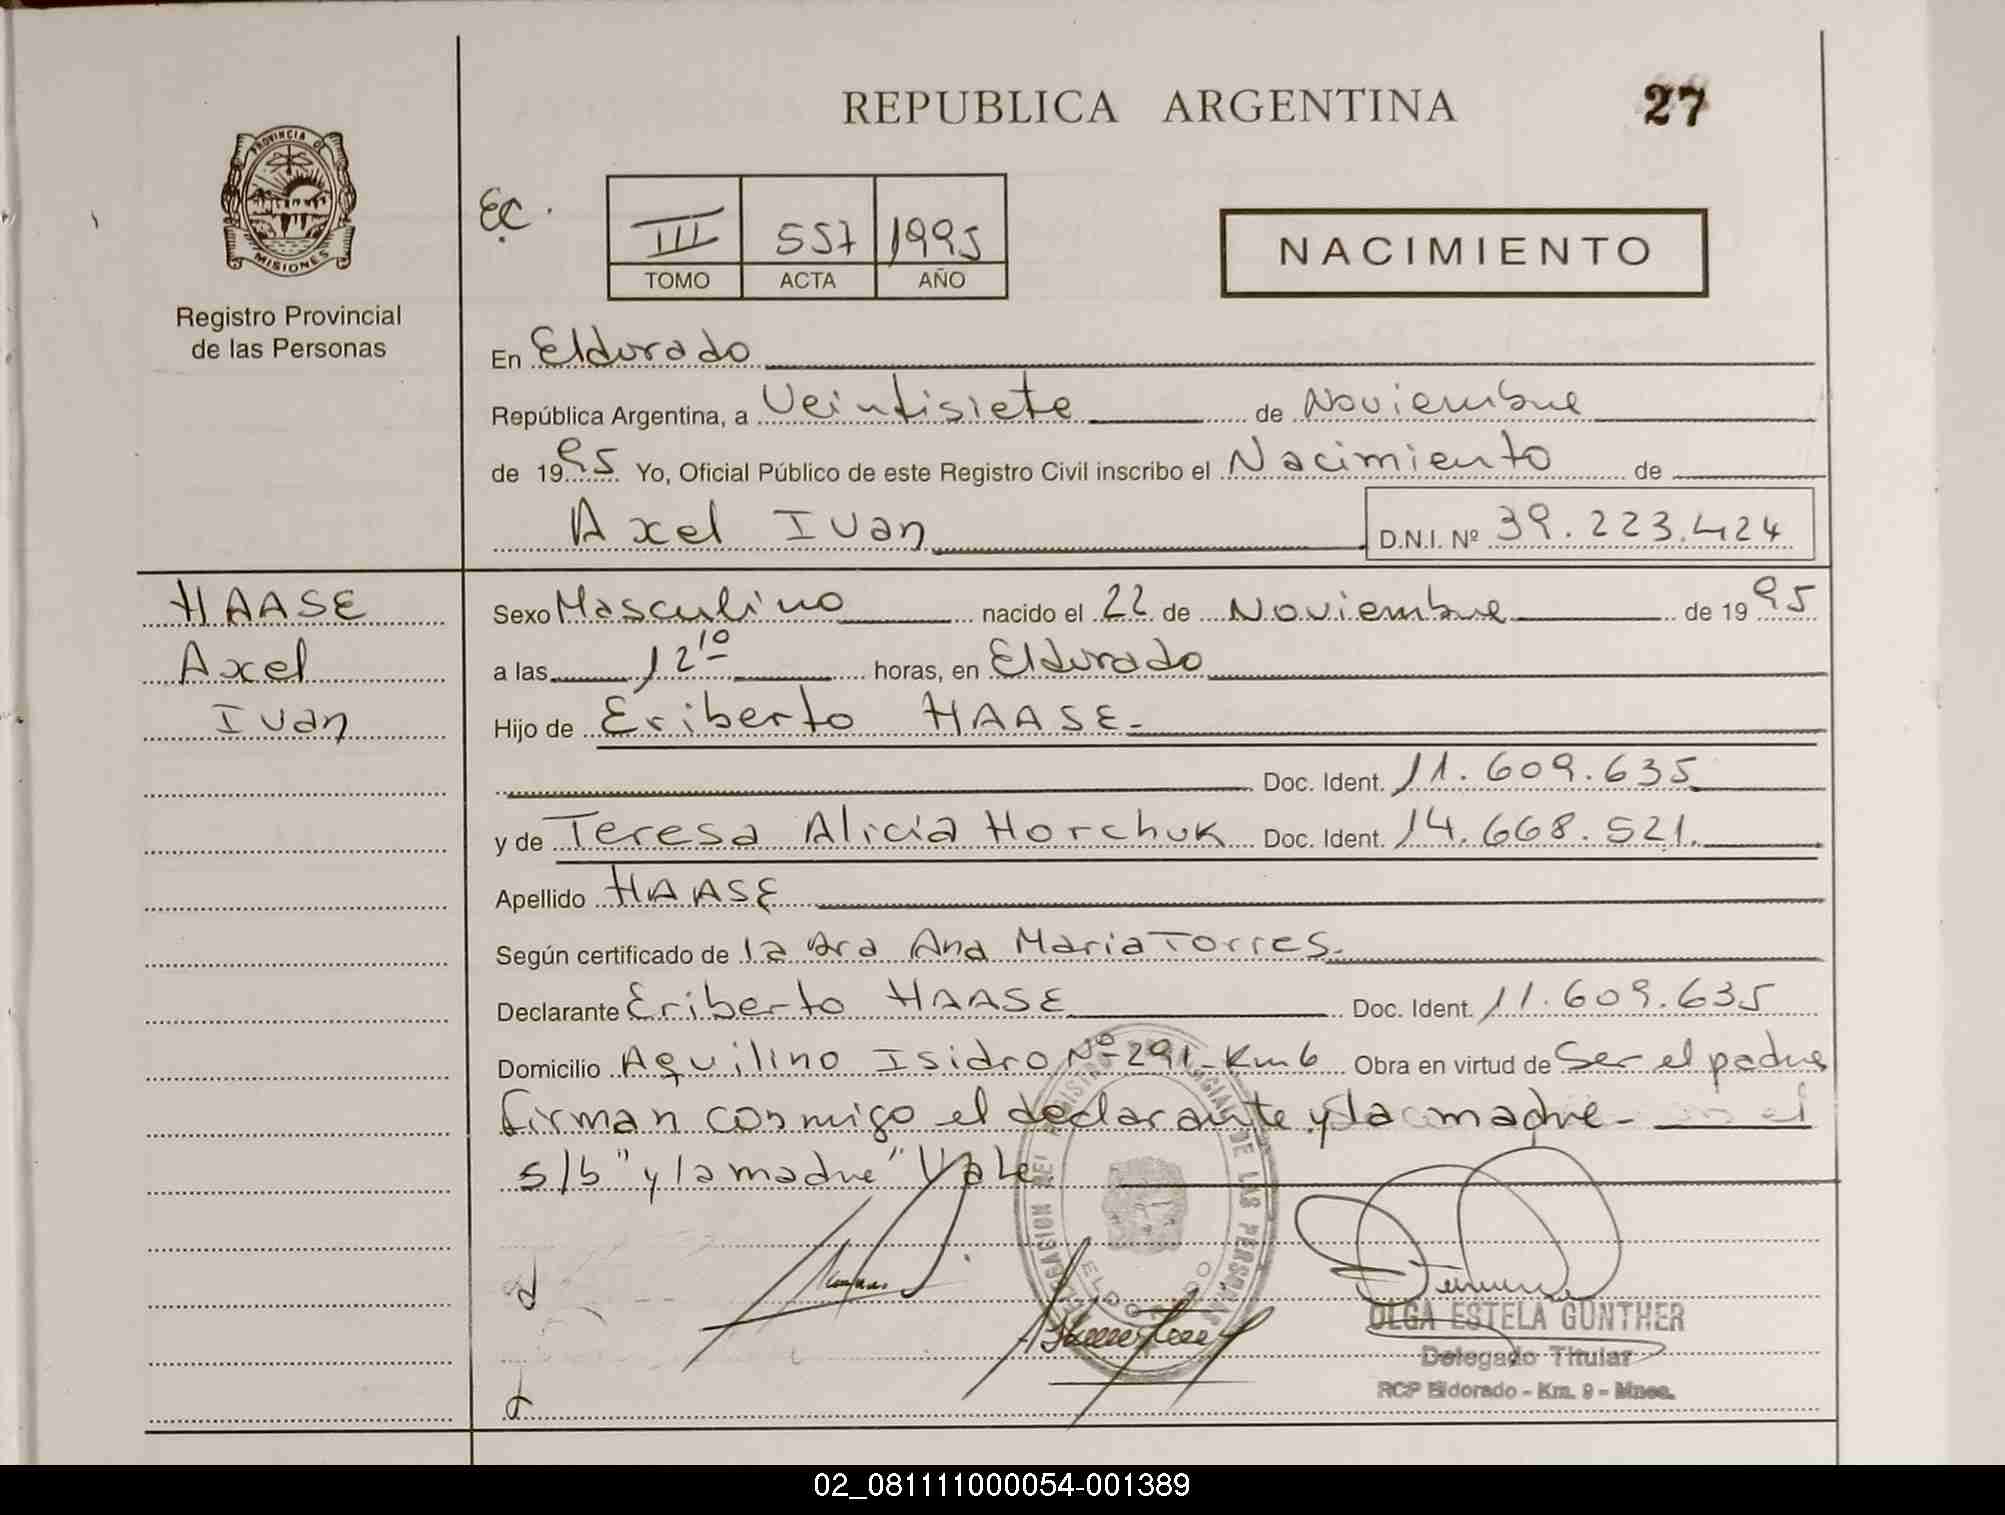 REPUBLICA ARGENTINA
27
PROVINCIA DE
MISIONES
Registro Provincial
de las Personas
EC.
III 557 1995
TOMO ACTA AÑO
NACIMIENTO
En Eldorado
República Argentina, a Veintisiete de Noviembre
de 1995 Yo, Oficial Público de este Registro Civil inscribo el Nacimiento de
Axel Ivan D.N.I. Nº 39.223.424
HAASE
Axel
Ivan
Sexo Masculino nacido el 22 de Noviembre de 1995
a las 12 10 horas, en Eldorado
Hijo de Eriberto HAASE-
Doc. Ident. 11.609.635
y de Teresa Alicia Horchuk Doc. Ident. 14.668.521.
Apellido HAASE
Según certificado de la Dra Ana Maria Torres-
Declarante Eriberto HAASE Doc. Ident. 11.609.635
Domicilio Aquilino Isidro Nº 291-Km6 Obra en virtud de Ser el padre
firman conmigo el declarante y la madre-
s/b "y la madre" Vale
DELEGACION DEL REGISTRO PROVINCIAL DE LAS PERSONAS
ELDORADO
OLGA ESTELA GUNTHER
Delegado Titular
RCP Eldorado - Km. 9 - Mnes.
02_081111000054-001389